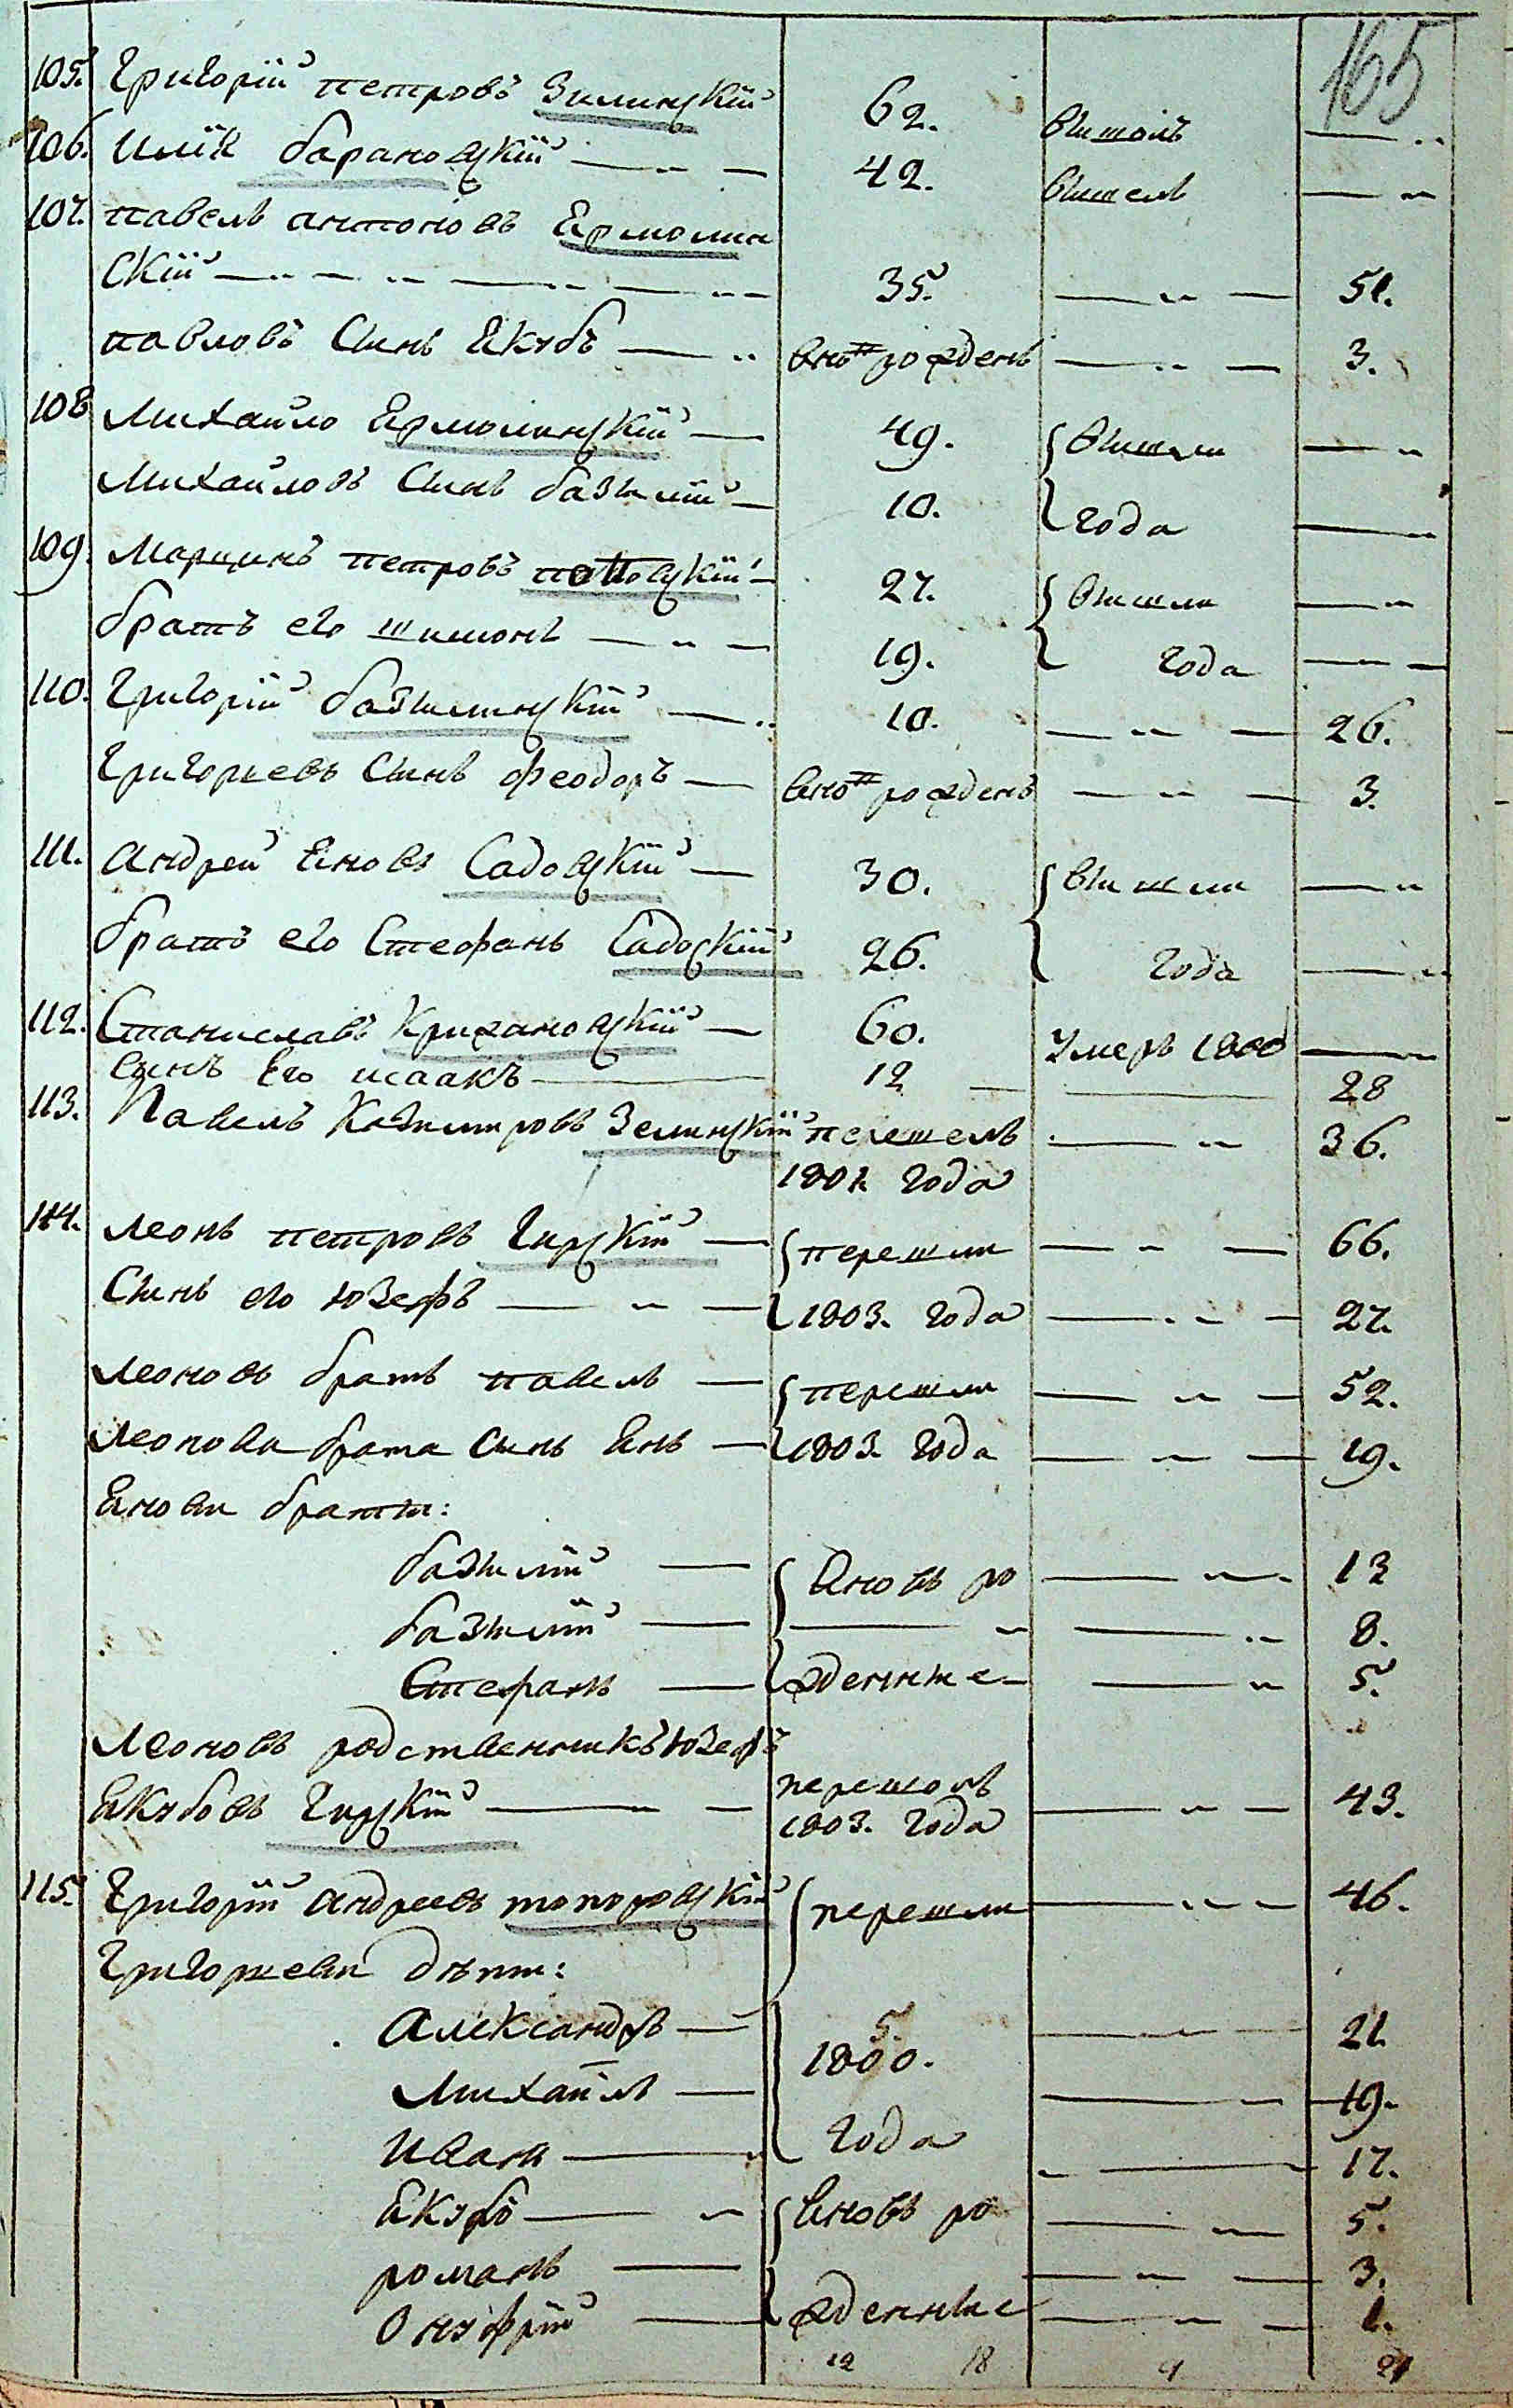 165
105. Григорій петровъ Зилинскій 62. вишолъ — ..
106. илія барановскій — .. — 42. вишелъ — ..
107. павелъ антоновъ Ермолин
скій — .. — .. — .. — .. 35. — .. — 51.
павловъ Синъ Якубъ — .. вновъ рожденъ — .. — 3.
108 Михайло Ермолинскій — 49. вишли — ..
Михайловъ Синъ базилій — 10. года — ..
109. Марцинъ петровъ поповскій — 27. вишли — ..
братъ его шимонъ — .. — 19. года — .. —
110. Григорій базилинскій — .. 10. — .. — 26.
Григориевъ Синъ феодоръ — вновъ рожденъ — .. — 3.
111. андрей Яновъ Садовскій — 30. вишли — ..
братъ его Стефанъ Садоскій 26. года — ..
112. Станиславъ Крижановскій — 60. Умеръ 1800 — ..
синъ Его исаакъ — 12 — — 28
113. Павелъ Казимировъ Зелинскій перешелъ — .. 36.
1801. года
114. леонъ петровъ Гирскій — перешли — .. — 66.
Синъ его юзефъ — .. — 1803. года — .. — 27.
леоновъ братъ павелъ — перешли — .. — 52.
леонова брата Синъ Янъ — 1803. года — .. — 19.
Янови брати:
базилій — вновъ ро — .. 13
базилій — — .. — .. 8.
Стефанъ — жденние — — .. 5.
леоновъ родственникъ юзефъ
Якубовъ Гирскій — — перешолъ — .. — 43.
1803. года
115. Григорій андреевъ топоровскій перешли — .. — 46.
Григориеви дѣти:
александръ — 5. — .. — 21.
1800.
Михаилъ — — .. 19.
иванъ — года — 17.
Якубъ — .. вновъ ро — .. 5.
романъ — — .. — 3.
Онуфрій — жденние — .. — 1.
12 18 9 21